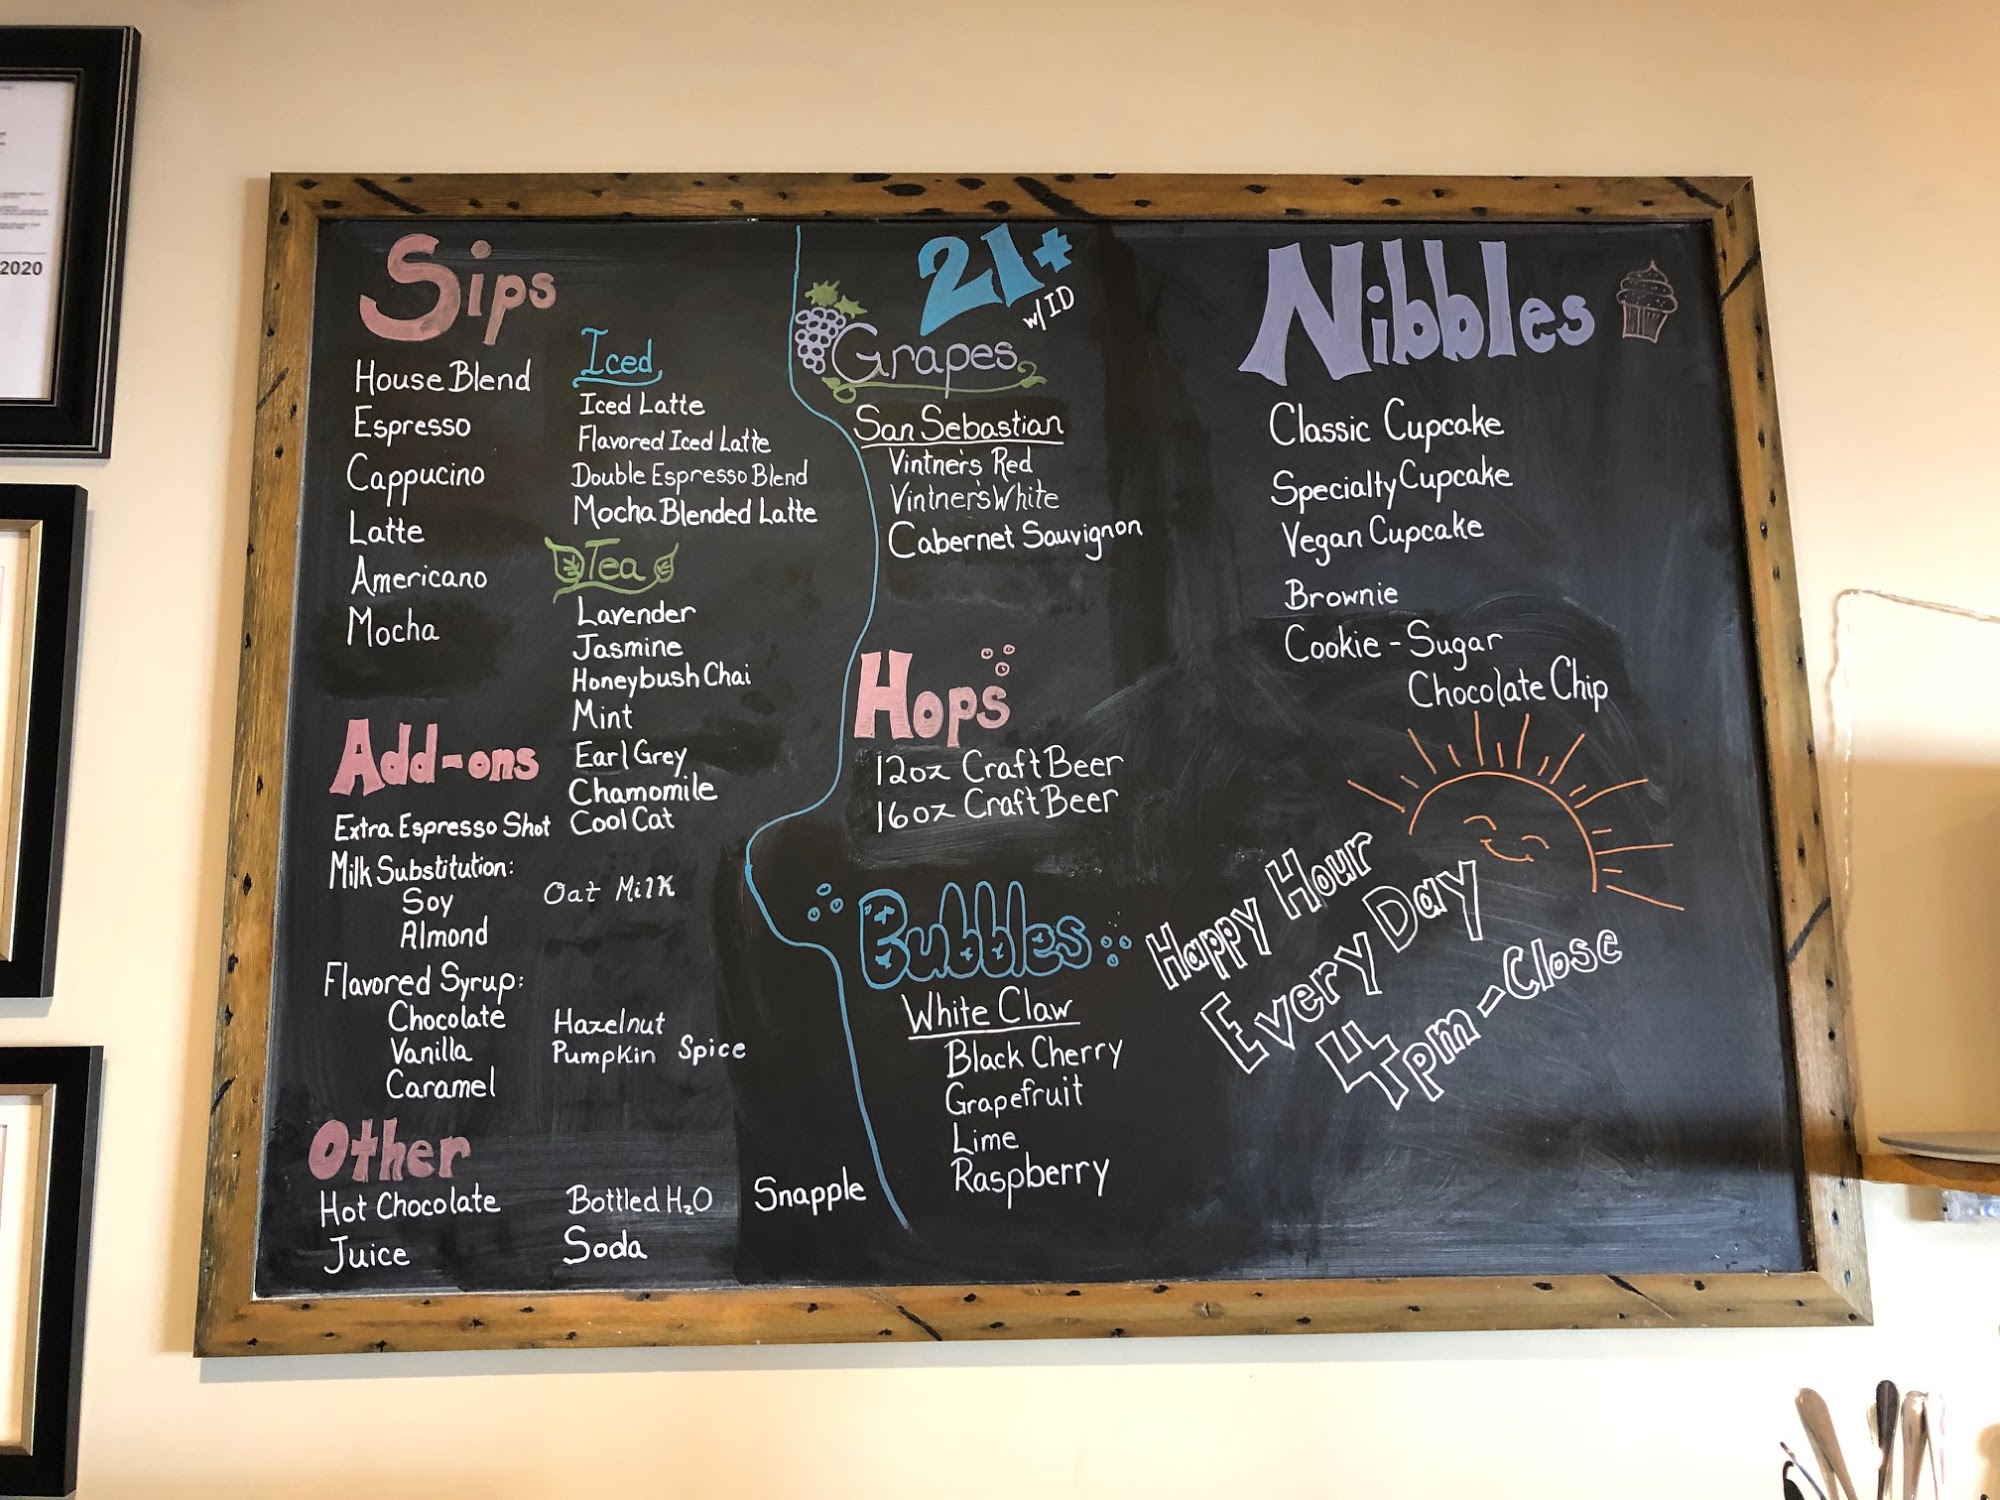 2020
Sips
House Blend
Espresso
Cappucino
Latte
Americano
Mocha
Iced
Iced Latte
Flavored Iced Latte
Double Espresso Blend
Mocha Blended Latte
Tea
Lavender
Jasmine
Honeybush Chai
Mint
Earl Grey
Chamomile
Cool Cat
Add-ons
Extra Espresso Shot
Milk Substitution:
Soy
Almond
Oat Milk
Flavored Syrup:
Chocolate
Vanilla
Caramel
Hazelnut
Pumpkin Spice
Other
Hot Chocolate
Juice
Bottled H₂O
Soda
Snapple
21+
w/ID
Grapes
San Sebastian
Vintner's Red
Vintner's White
Cabernet Sauvignon
Hops
12oz Craft Beer
16oz Craft Beer
Bubbles
White Claw
Black Cherry
Grapefruit
Lime
Raspberry
Nibbles
Classic Cupcake
Specialty Cupcake
Vegan Cupcake
Brownie
Cookie - Sugar
Chocolate Chip
Happy Hour
Every Day
4pm - Close